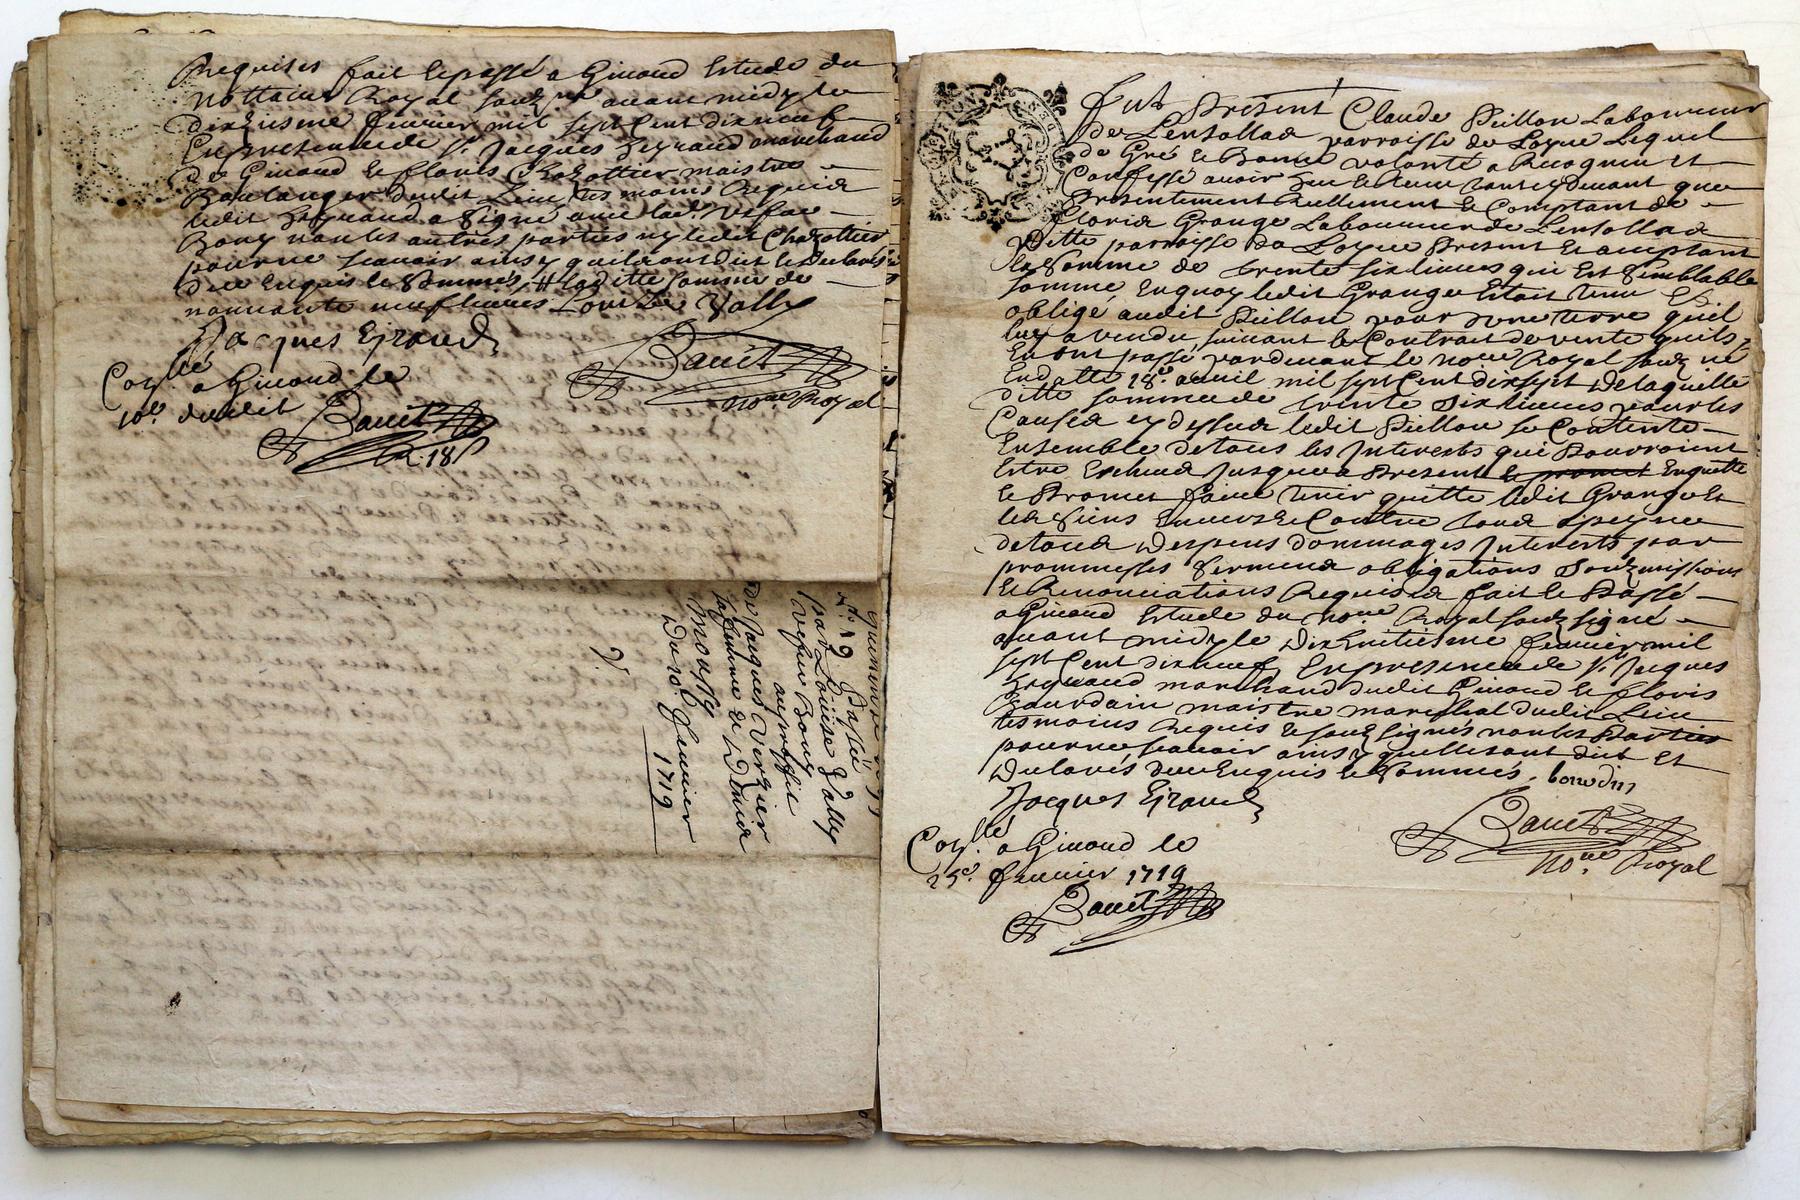 Requises fait et passé a Givord Estude du
Nottaire Royal soubz.né avant midy le
dixiesme febvrier mil sept Cent dixneuf
En presence de Sr. Jacques Eyraud marchand
de Givord et Maistre
Boulanger dudit Lieu tesmoins Requis
ledit Eyraud a Signé avec lad.
Bony non les autres parties ny ledit Chazottier
pour ne scavoir ainsy quils ont dit et declaré
de ce Enquis et Sommés, # laditte Somme de
nonnante neuf livres Louise Vally
Jacques Eyraud
Bauet
no.re Royal
Co.llé a Givord le
10e. dudit
Bauet
R. 18s
quittance de 99
lt. 19 Passée
par Louise Vally
vefve Bony
au proffit
de Jacques Verzier
la femme de Denis
Moussy
Du 10e. febvrier
1719
fut Present Claude Peillon Laboureur
de Lensollas parroisse de Loyre Lequel
de Gré et Bonne volonté a Recogneu et
Confessé avoir heu et receu tant cy devant que
Presentement Reellement et Comptant de
Floris Grange Laboureur de Lensollas
ditte parroisse de Loyre Present et acceptant
la Somme de trente six livres qui Est Semblable
somme En quoy ledit Grange Estait tenu Et
obligé audit Peillon pour une terre quil
luy a vendu, suivant le Contrat de vente quils
En ont passé pardevant le no.re Royal soubz.né
En datte 18e. avril mil sept Cent dixsept De laquelle
ditte somme de trente Six livres pour les
Causes cy dessus ledit Peillon se Contente
Ensemble de tous les Interests qui Pourroient
Estre Escheus Jusques a Present et promet Enquitte
et Promet faire tenir quitte ledit Grange Et
les Siens Envers et Contre tous a peyne
de tous Despens dommages Interests par
prommesses Serment obligations Soubzmissions
et Renonciations Requises fait et Passé
a Givord Estude du no.re Royal soubz signé
avant midy le Dixhuitiesme febvrier mil
sept Cent dixneuf En presence de Sr. Jacques
Eyraud marchand dudit Givord et Floris
Bourdain maistre mareschal dudit Lieu
tesmoins Requis et soubz signés non les Parties
pour ne scavoir ainsy quelles ont dit Et
Declarés de ce Enquis et Sommés. bourdin
Jacques Eyraud
Bauet
no.re Royal
Co.llé a Givord le
25e. febvrier 1719
Bauet